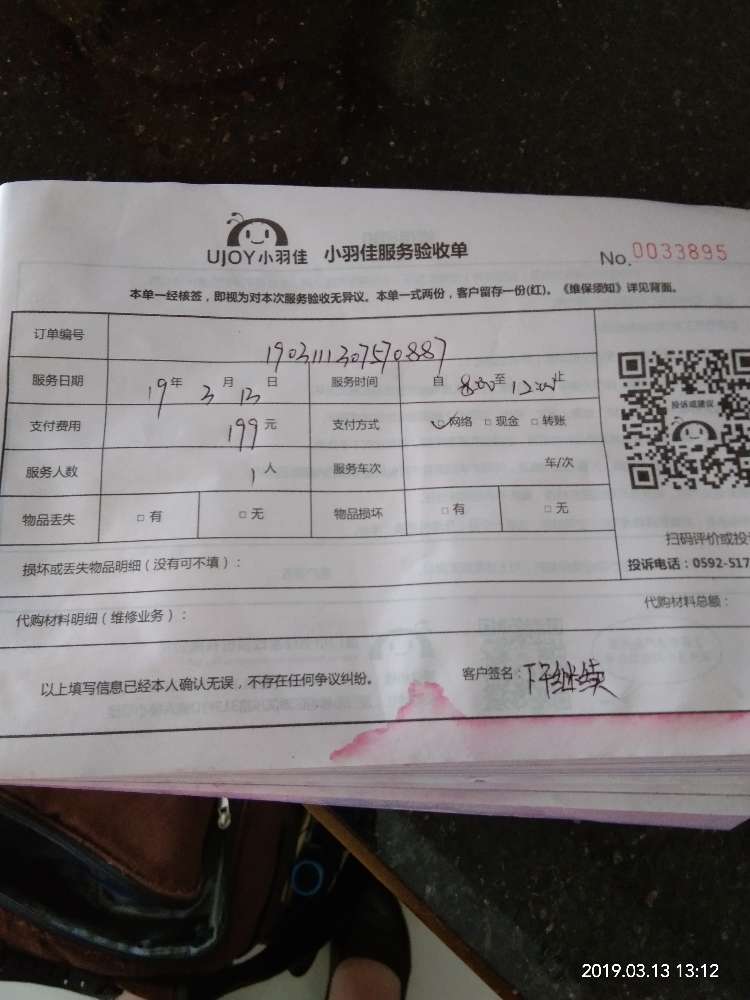 UJOY小羽佳 小羽佳服务验收单 No.0033895
本单一经核签，即视为对本次服务验收无异议。本单一式两份，客户留存一份(红)。《维保须知》详见背面。
订单编号 1903111307570887
服务日期 19年 3月 13日 服务时间 自 8:00至12:00止
支付费用 199元 支付方式 ☑网络 □现金 □转账
投诉或建议
服务人数 1人 服务车次 车/次
物品丢失 □有 □无 物品损坏 □有 □无
扫码评价或投
损坏或丢失物品明细（没有可不填）： 投诉电话：0592-517
代购材料明细（维修业务）： 代购材料总额：
以上填写信息已经本人确认无误，不存在任何争议纠纷。 客户签名：下午继续
2019.03.13 13:12